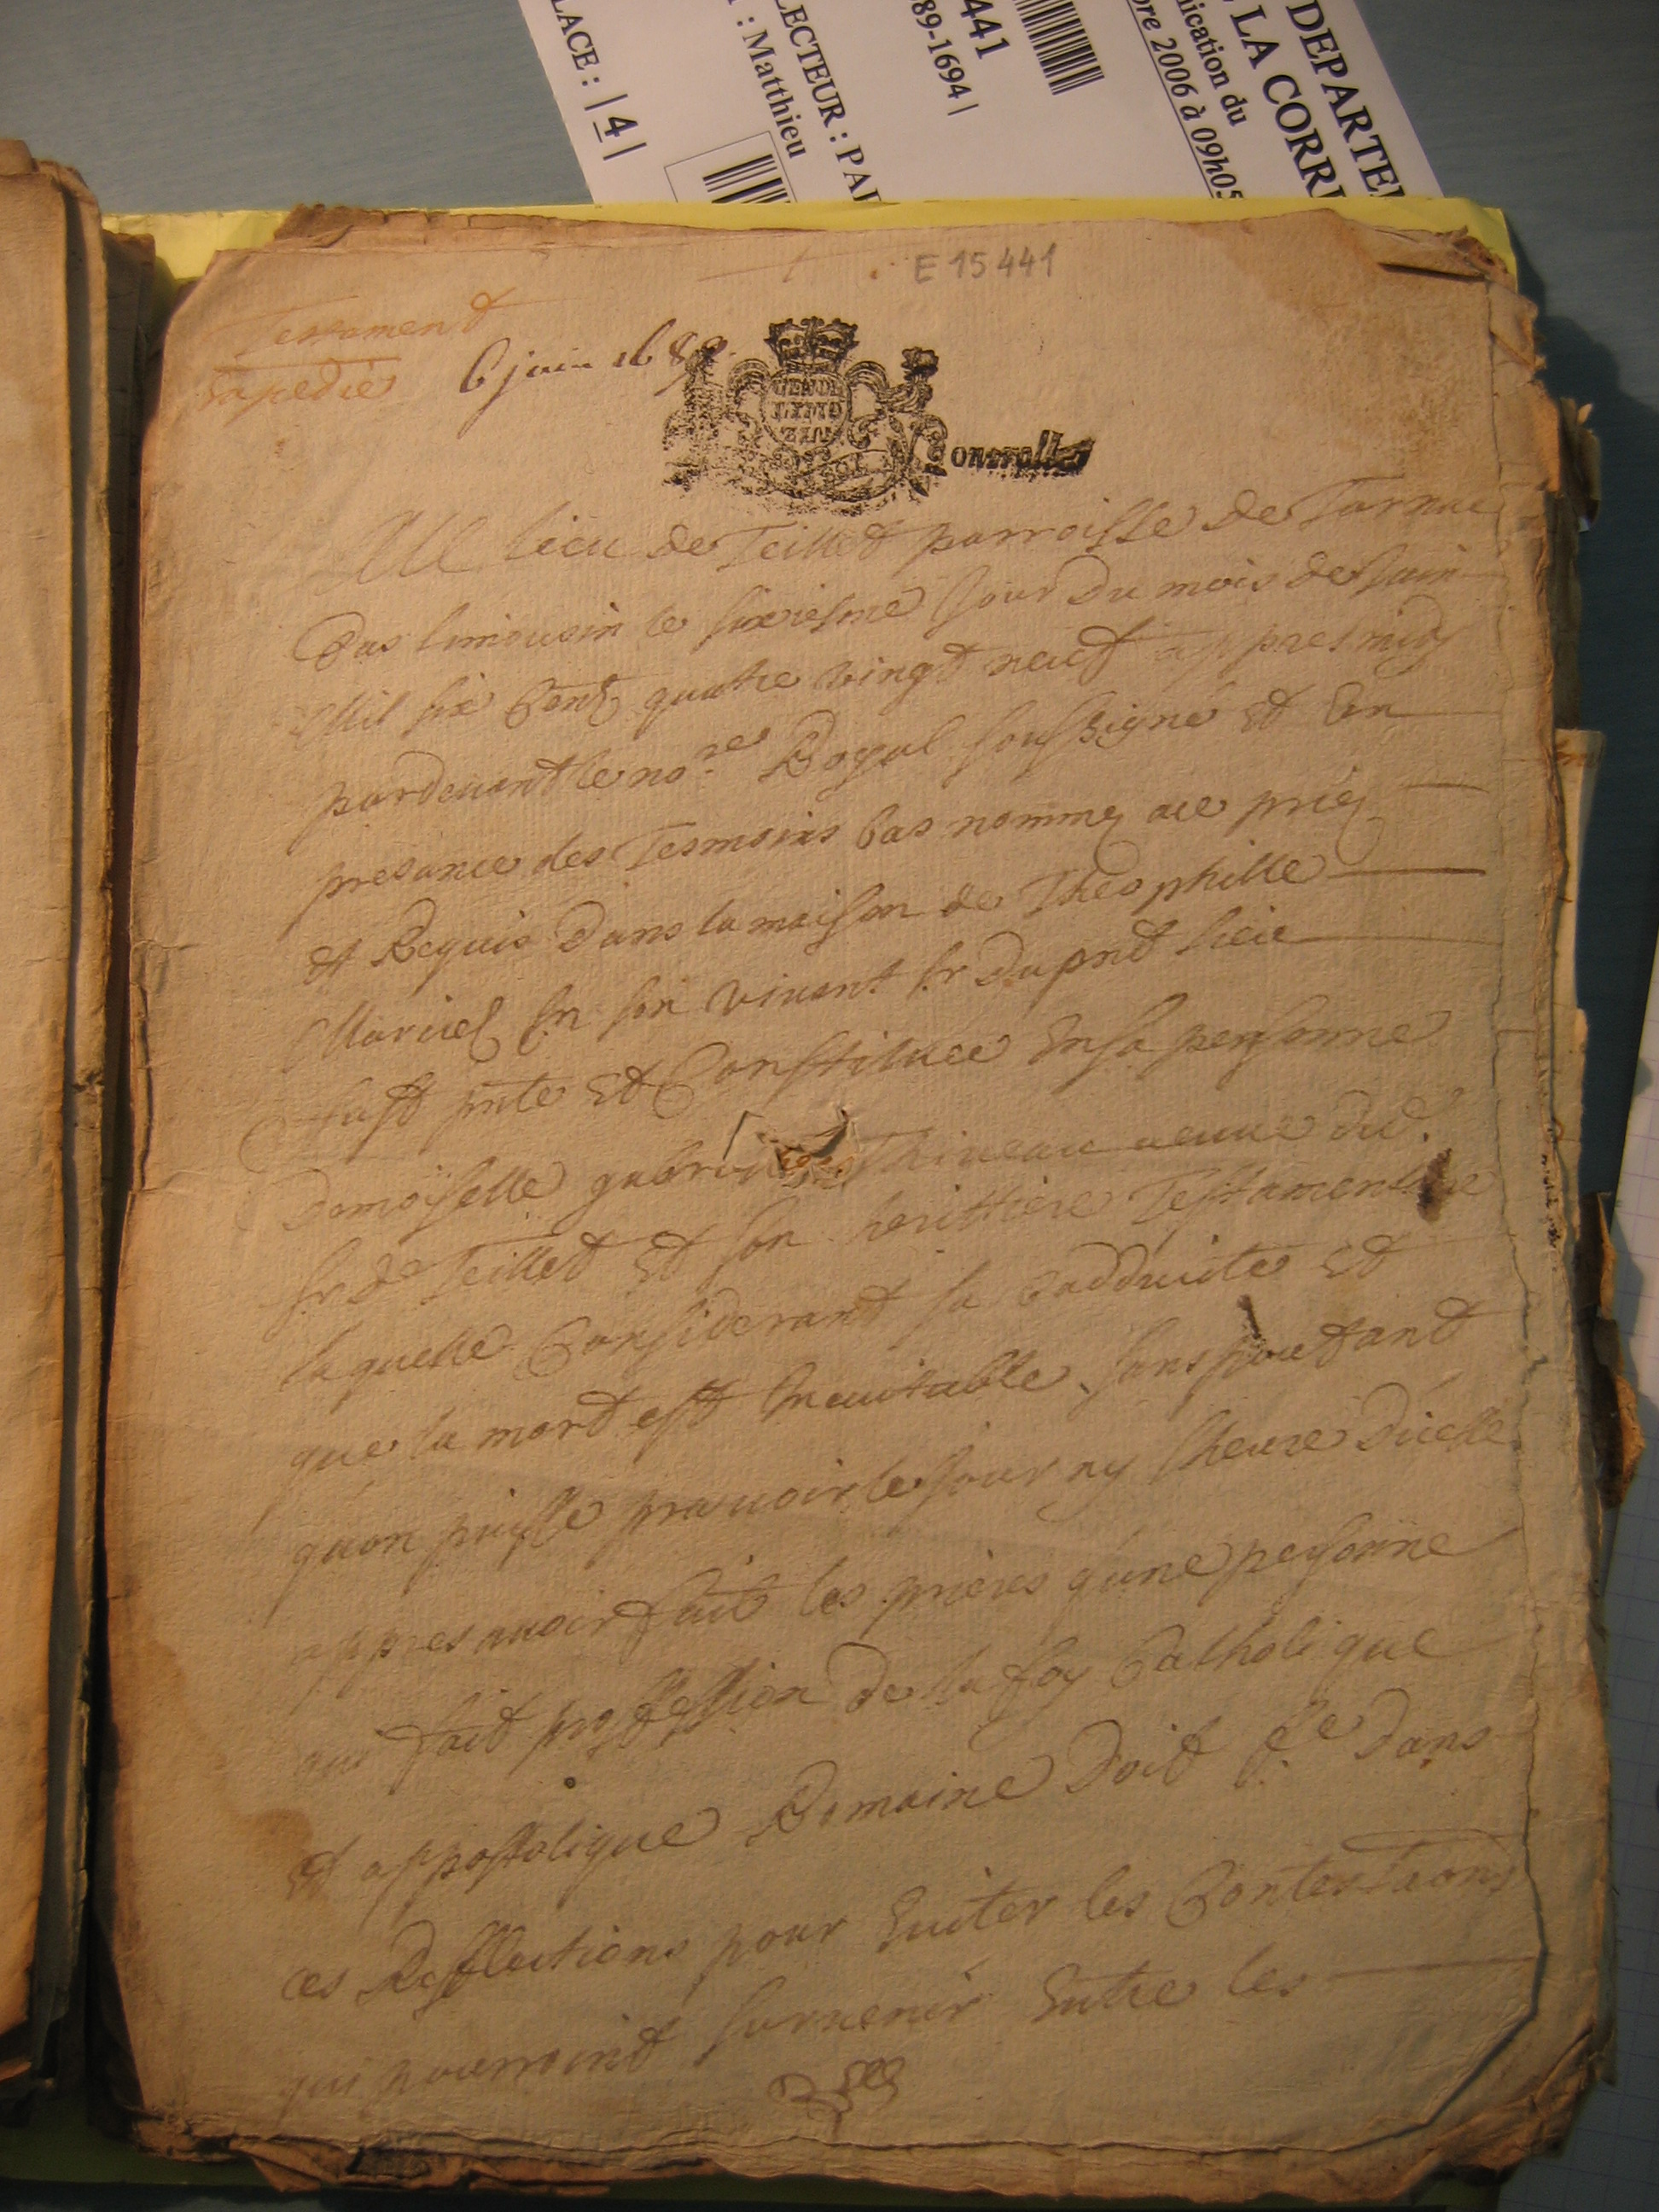 DEPARTE
LA CORR
ication du
bre 2006 à 09h05
441
89-1694 |
LECTEUR : PA
: Matthieu
LACE : | 4 |
E 15441
Testament
expedié
6 juin 1689.
GENER
LIMO
ZIN
Controlle
Au lieu de Teillet parroisse de Tarnac
bas limousin le sixiesme jour du mois de juin
Mil six cent quatre vingt neuf appres midy
pardevant le no.re Royal soussigné et en
presance des Tesmoins bas nommes
et Requis dans la maison de Theophille
en son vivant sr du pnt lieu
fust pnte et Constituee en sa personne
Damoiselle veuve dud.
sr de Teillet et son herittiere Testamentere
laquelle Considerant sa et
que la mort est Inevitable sans pourtant
quon puisse pravoir le jour ny lheure dicelle
appres avoir fait les prieres qune personne
qui fait proffession de la foy Catholique
et appostolique Romaine doit fe dans
ces Refflections pour Eviter les Contestaons
qui pourroint survenir Entre les